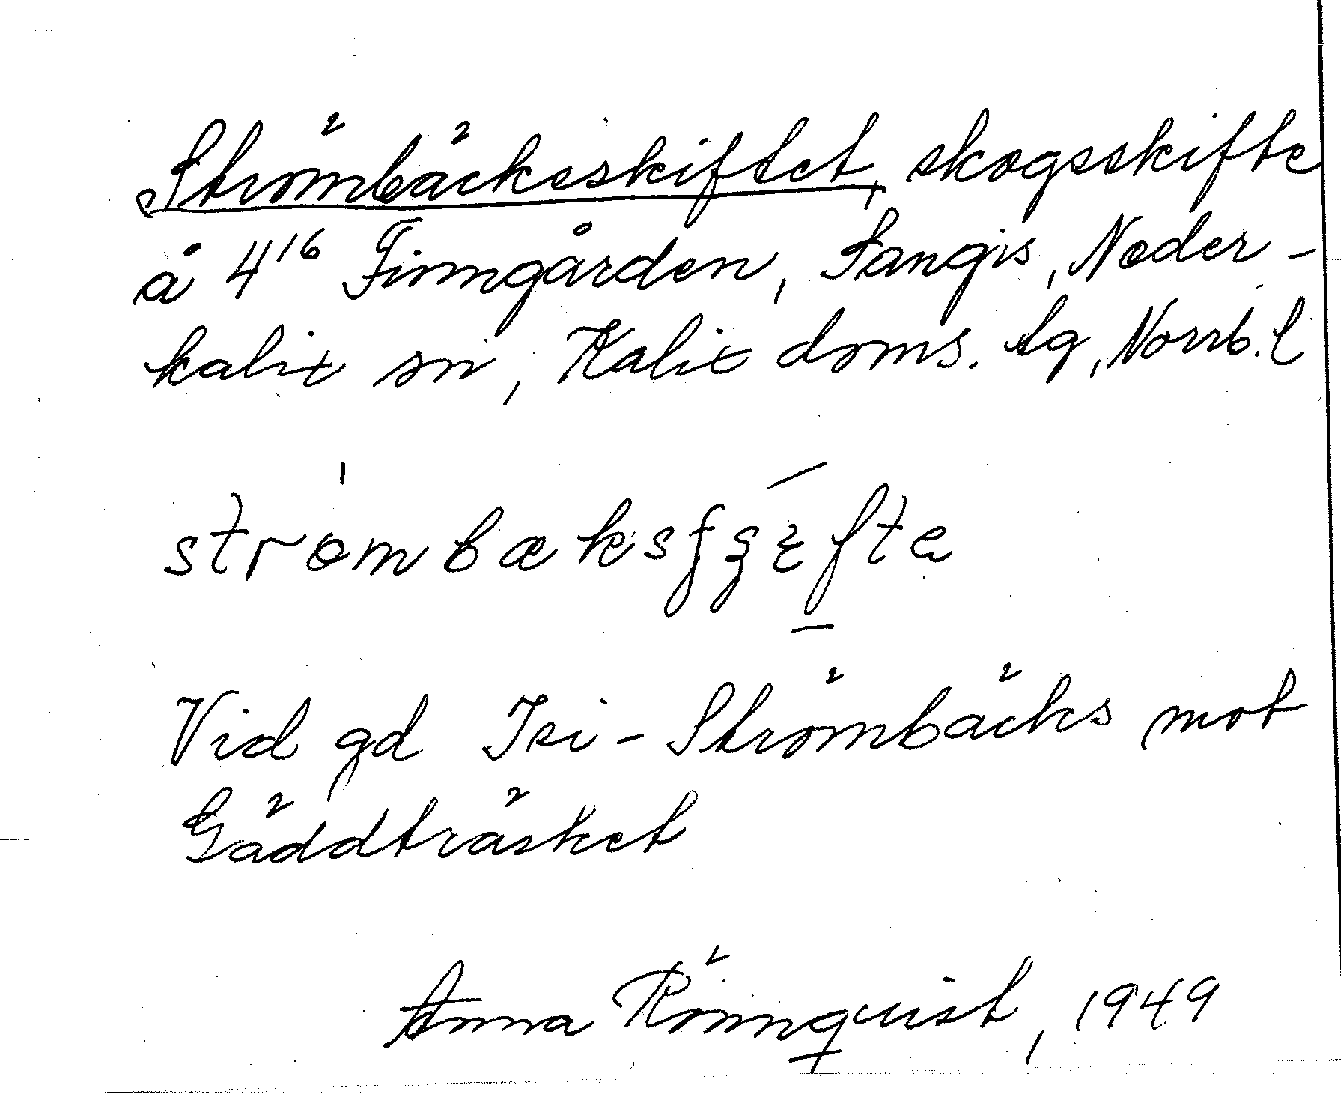 Strömbäcksskiftet, skogsskifte
å 4¹⁶ Finngården, Sangis, Neder-
kalix sn, Kalix doms. lg, Norrb. l
strømbæksʃʂɛfte
Vid gd Isi-Strömbäcks mot
Gäddträsket
Anna Rönnquist, 1949